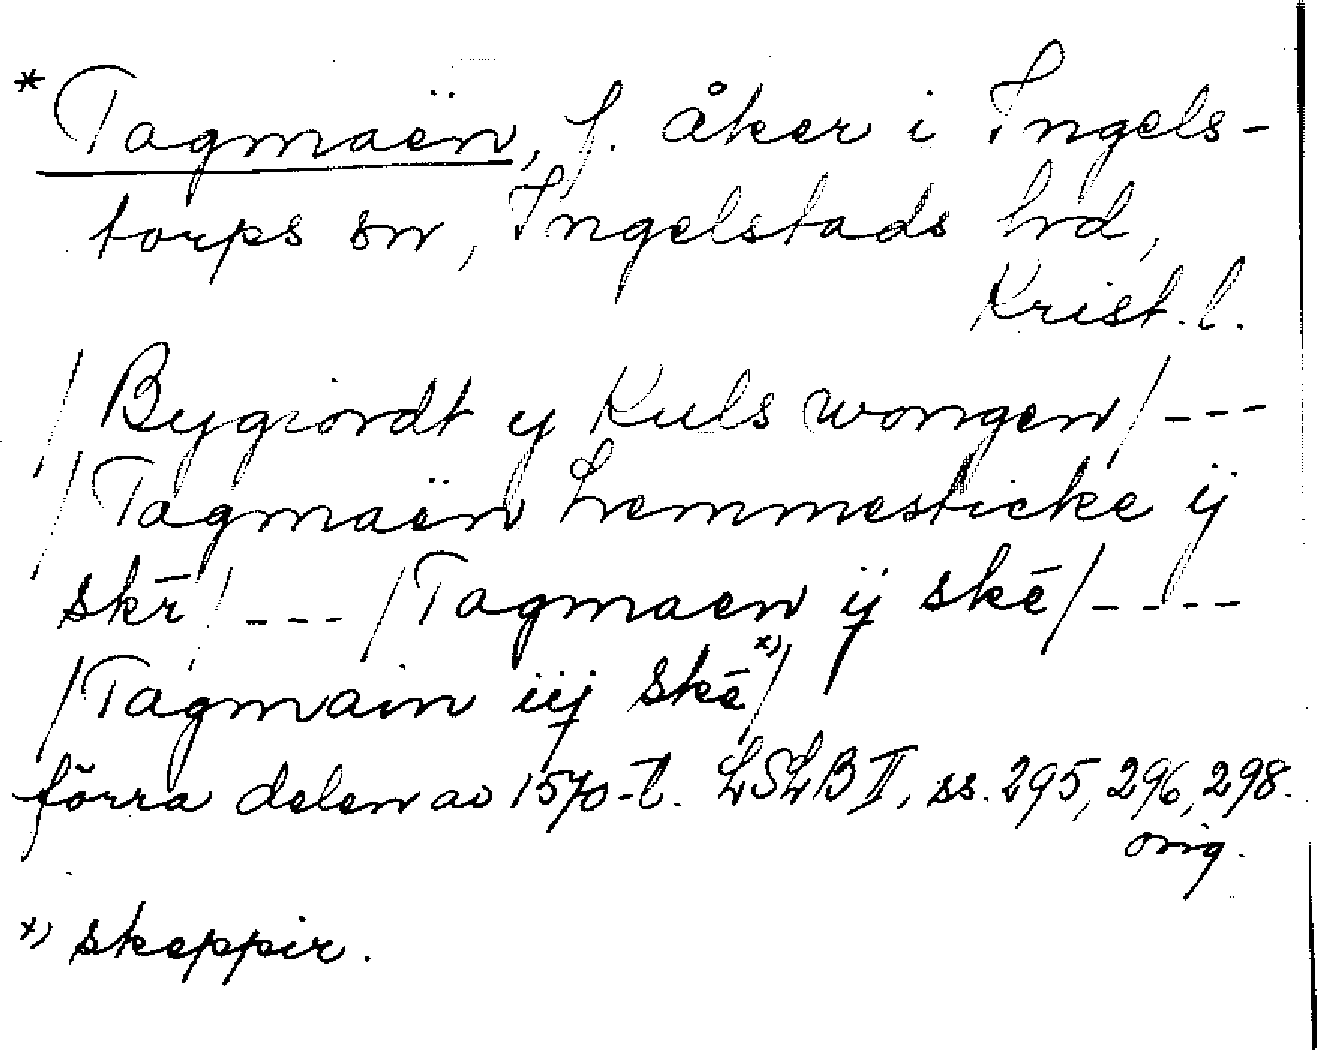 *Tagmaën, f. åker i Ingels-
torps sn, Ingelstads hd,
Krist. l.
/Bygiordt y Kuls wongen/---
/Tagmaën Lemmesticke ÿ
skē/---/Tagmaen ÿ skē/----
/Tagmain iij skē x)/
förra delen av 1570-t. LSLB II, ss. 295, 296, 298.
orig.
x) skeppir.